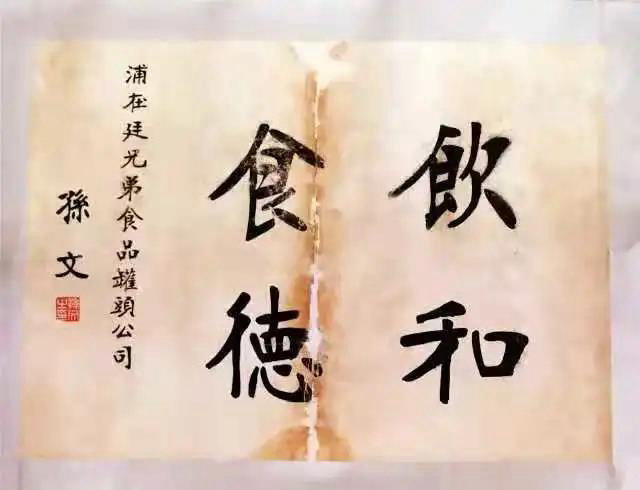 飲和
食德
浦在廷兄弟食品罐頭公司
孫文